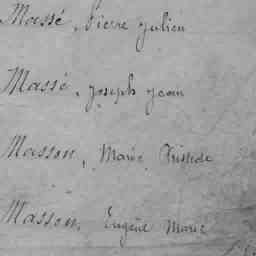 Massé, Pierre Julien
Massé, Joseph Jean
Masson, Marie Aristide
Masson, Eugène Marie